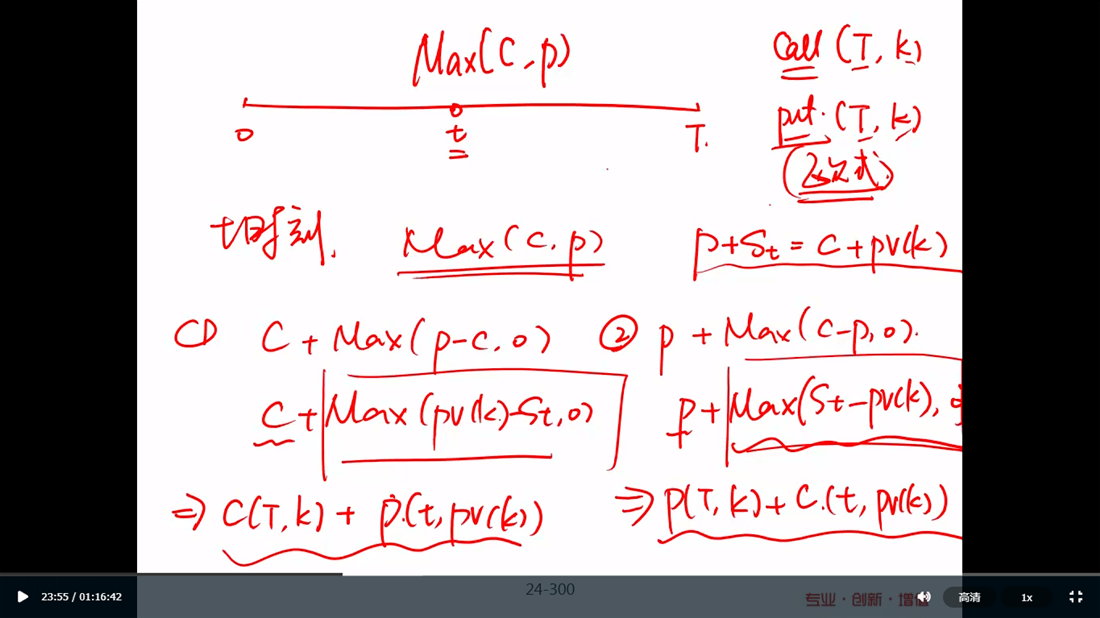 Max(C, p)
Call (T, k)
0 t T.
put. (T, k)
(欧式)
t时刻. Max(C, p) p+St = C+pv(k)
① C + Max(p-C, 0) ② p + Max(C-p, 0).
C + Max(pv(k)-St, 0) p + Max(St-pv(k), 0
⇒ C(T, k) + p.(t, pv(k)) ⇒ p(T, k) + C.(t, pv(k))
24-300
23:55 / 01:16:42 专业·创新·增值 高清 1x